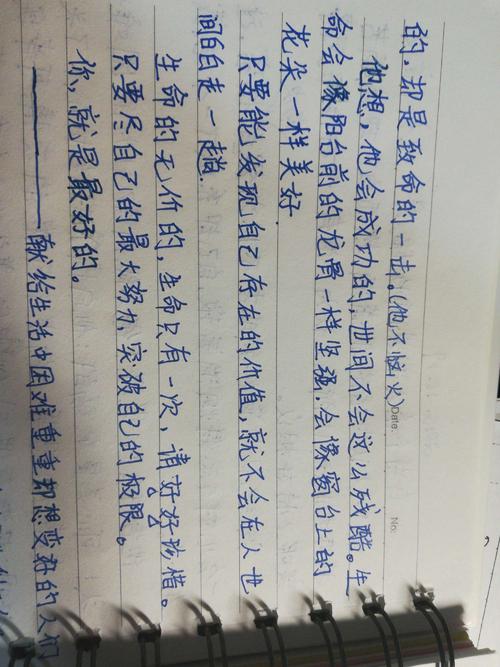 的，却是致命的一击。(他不恼火)
Date.
No.
他想，他会成功的，世间不会这么残酷。生
命会像阳台前的龙骨一样坚强，会像窗台上的
花朵一样美好
只要能发现自己存在的价值，就不会在人世
间白白走一趟.
生命的无价的，生命只有一次，请好好珍惜。
只要尽自己的最大努力，突破自己的极限。
你，就是最好的。
——献给生活中困难重重却想变好的人们